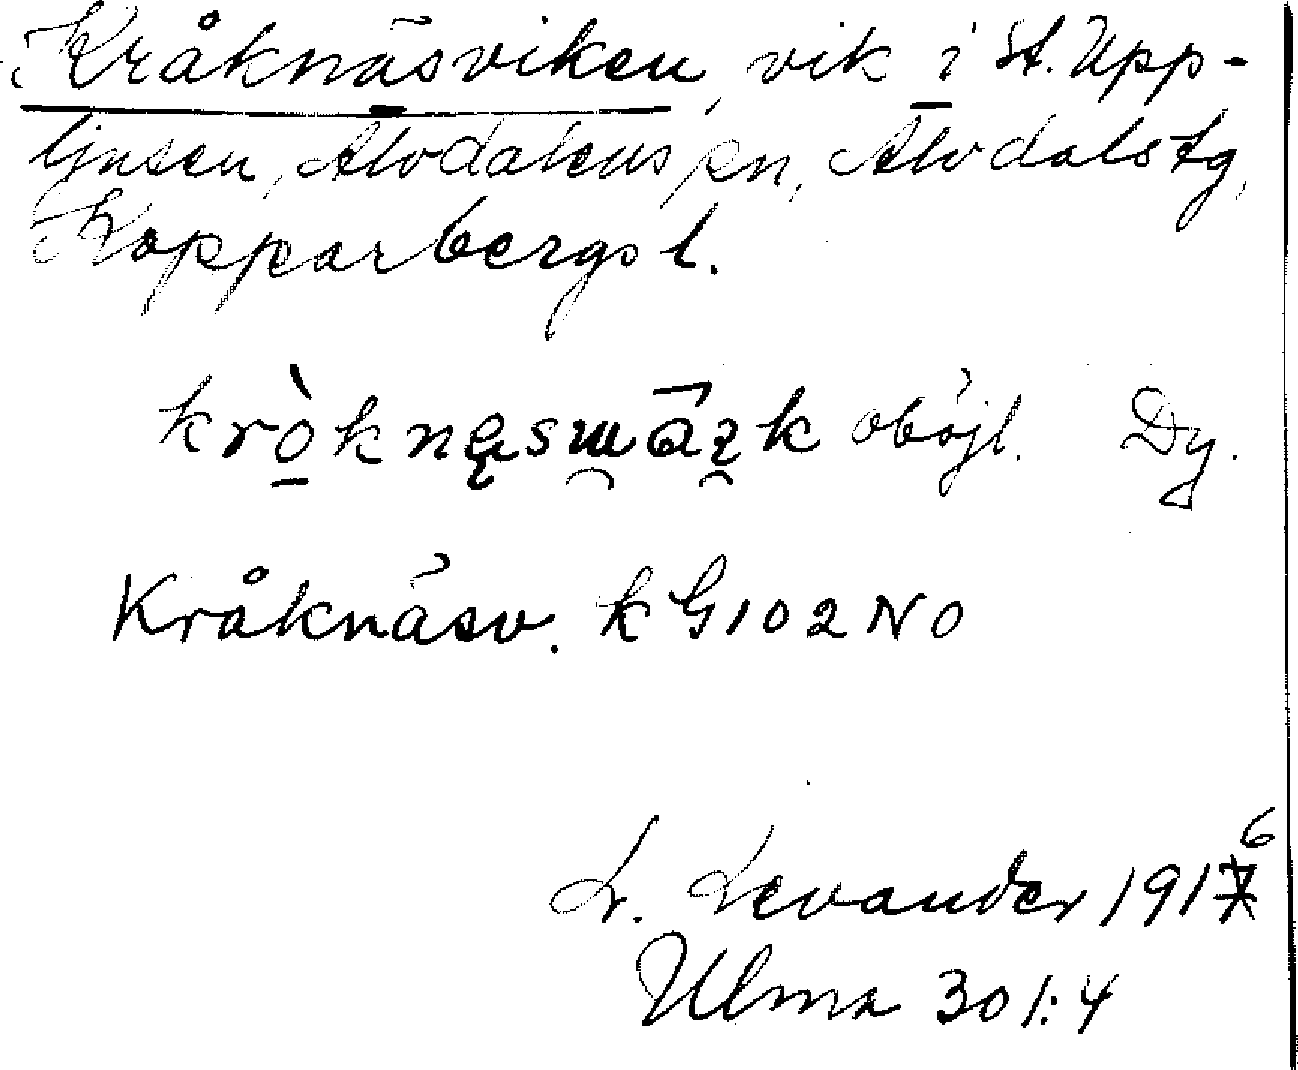 Kråknäsviken, vik i St. Upp-
ljusen, Älvdalens sn, Älvdals tg,
Kopparbergs l.
oböjl. Dy.
Kråknäsv. k G102 NO
L. Levander 1916
Ulma 301:4